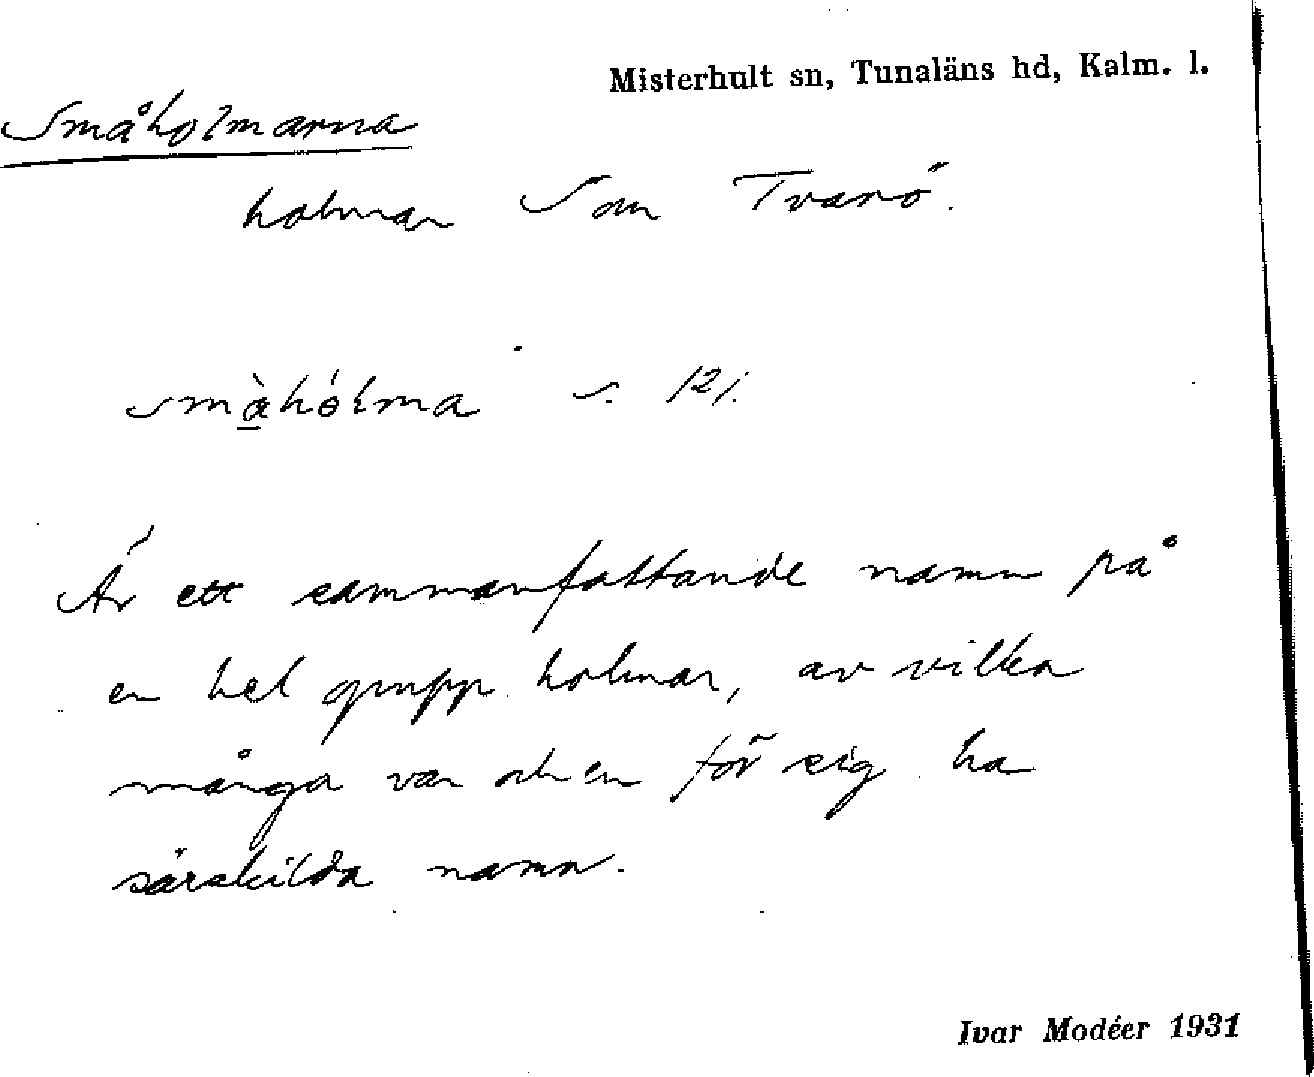 Misterhult sn, Tunaläns hd, Kalm. l.
Småholmarna
holmar S om Tvarö.
smàhólma s. 121.
Är ett sammanfattande namn på
en hel grupp holmar, av vilka
många var och en för sig ha
särskilda namn.
Ivar Modéer 1931